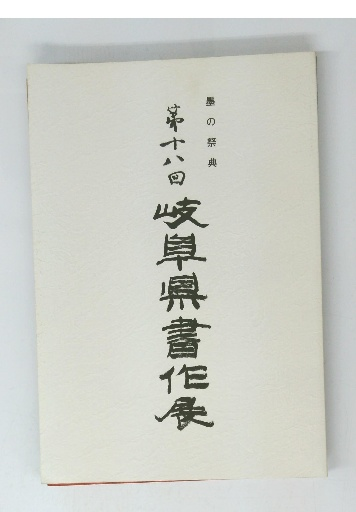 墨の祭典
第十八回
岐阜県書作展